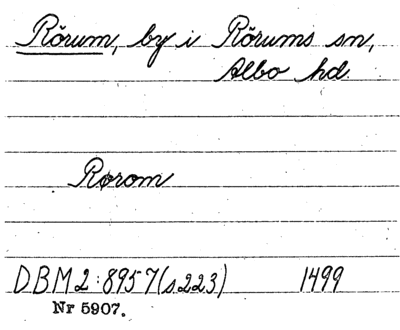 Rörum, by i Rörums sn,
Albo hd.
Rørom
DBM 2:8957 (s 223) 1499
Nr 5907.